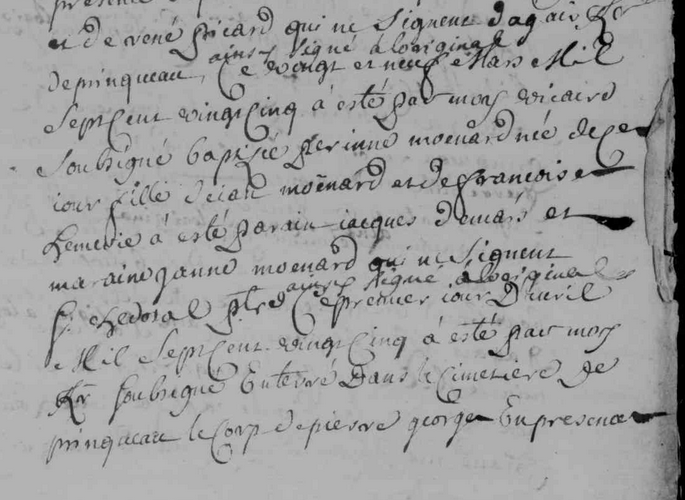 et de rené picard qui ne signent dagair Rr
de prinqueau, ainsy signé à loriginal Ce vingt et neuf Mars Mil
Sept Cent vingt Cinq à esté par moy vicaire
Soubsigné baptisée perinne moenard née de ce
iour fille de jan moenard et de francoise
à esté parain jacques demars et
maraine janne moenard qui ne signent
ptre ainsy signé à loriginal Ce premier iour Davril
Mil Sept Cent vingt Cinq à esté par moy
Rr soubsigné Enterré Dans le Cimetiere de
prinqueau le Corp de pierre george En presence